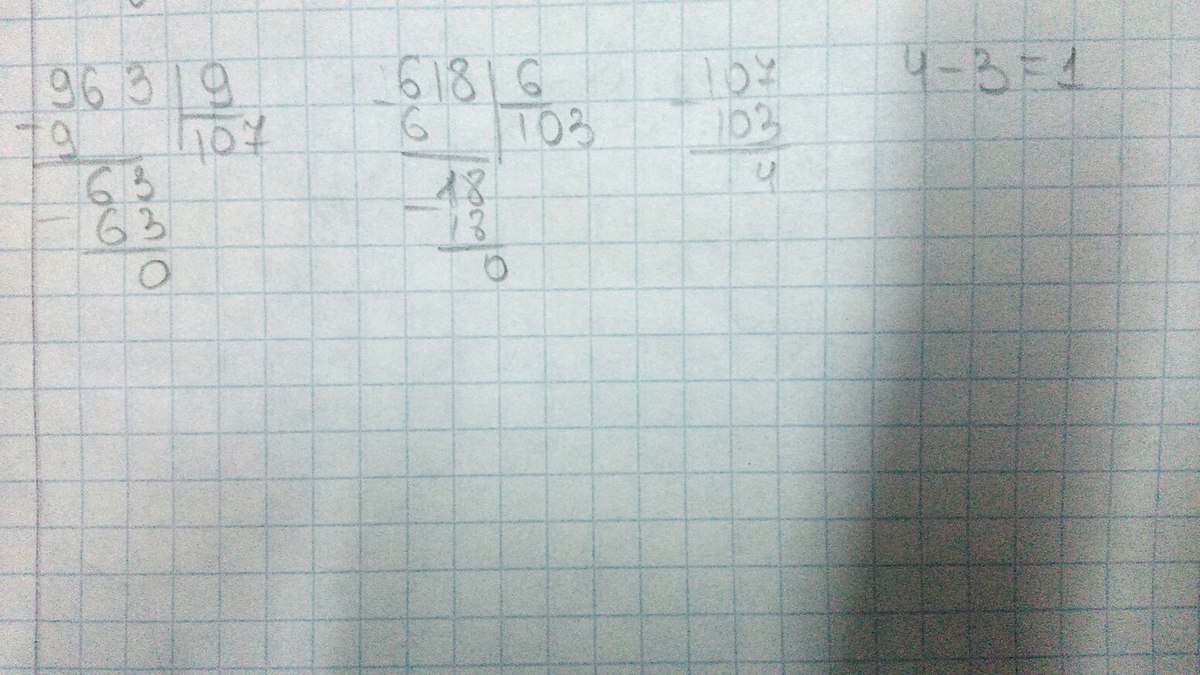 963 | 9
- 9 | 107
63
- 63
0
- 618 | 6
6 | 103
18
- 18
0
- 107
103
4
4 - 3 = 1